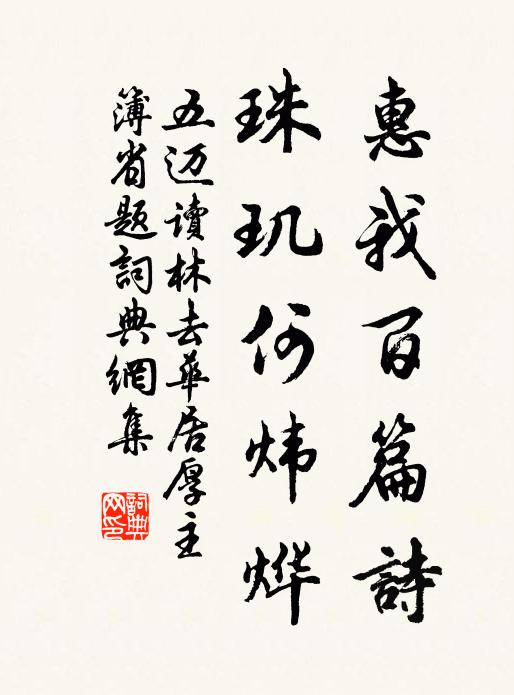 惠我百篇詩
珠玑何炜烨
五迈讀林去華居厚主
簿省題詞典網集
詞典网印